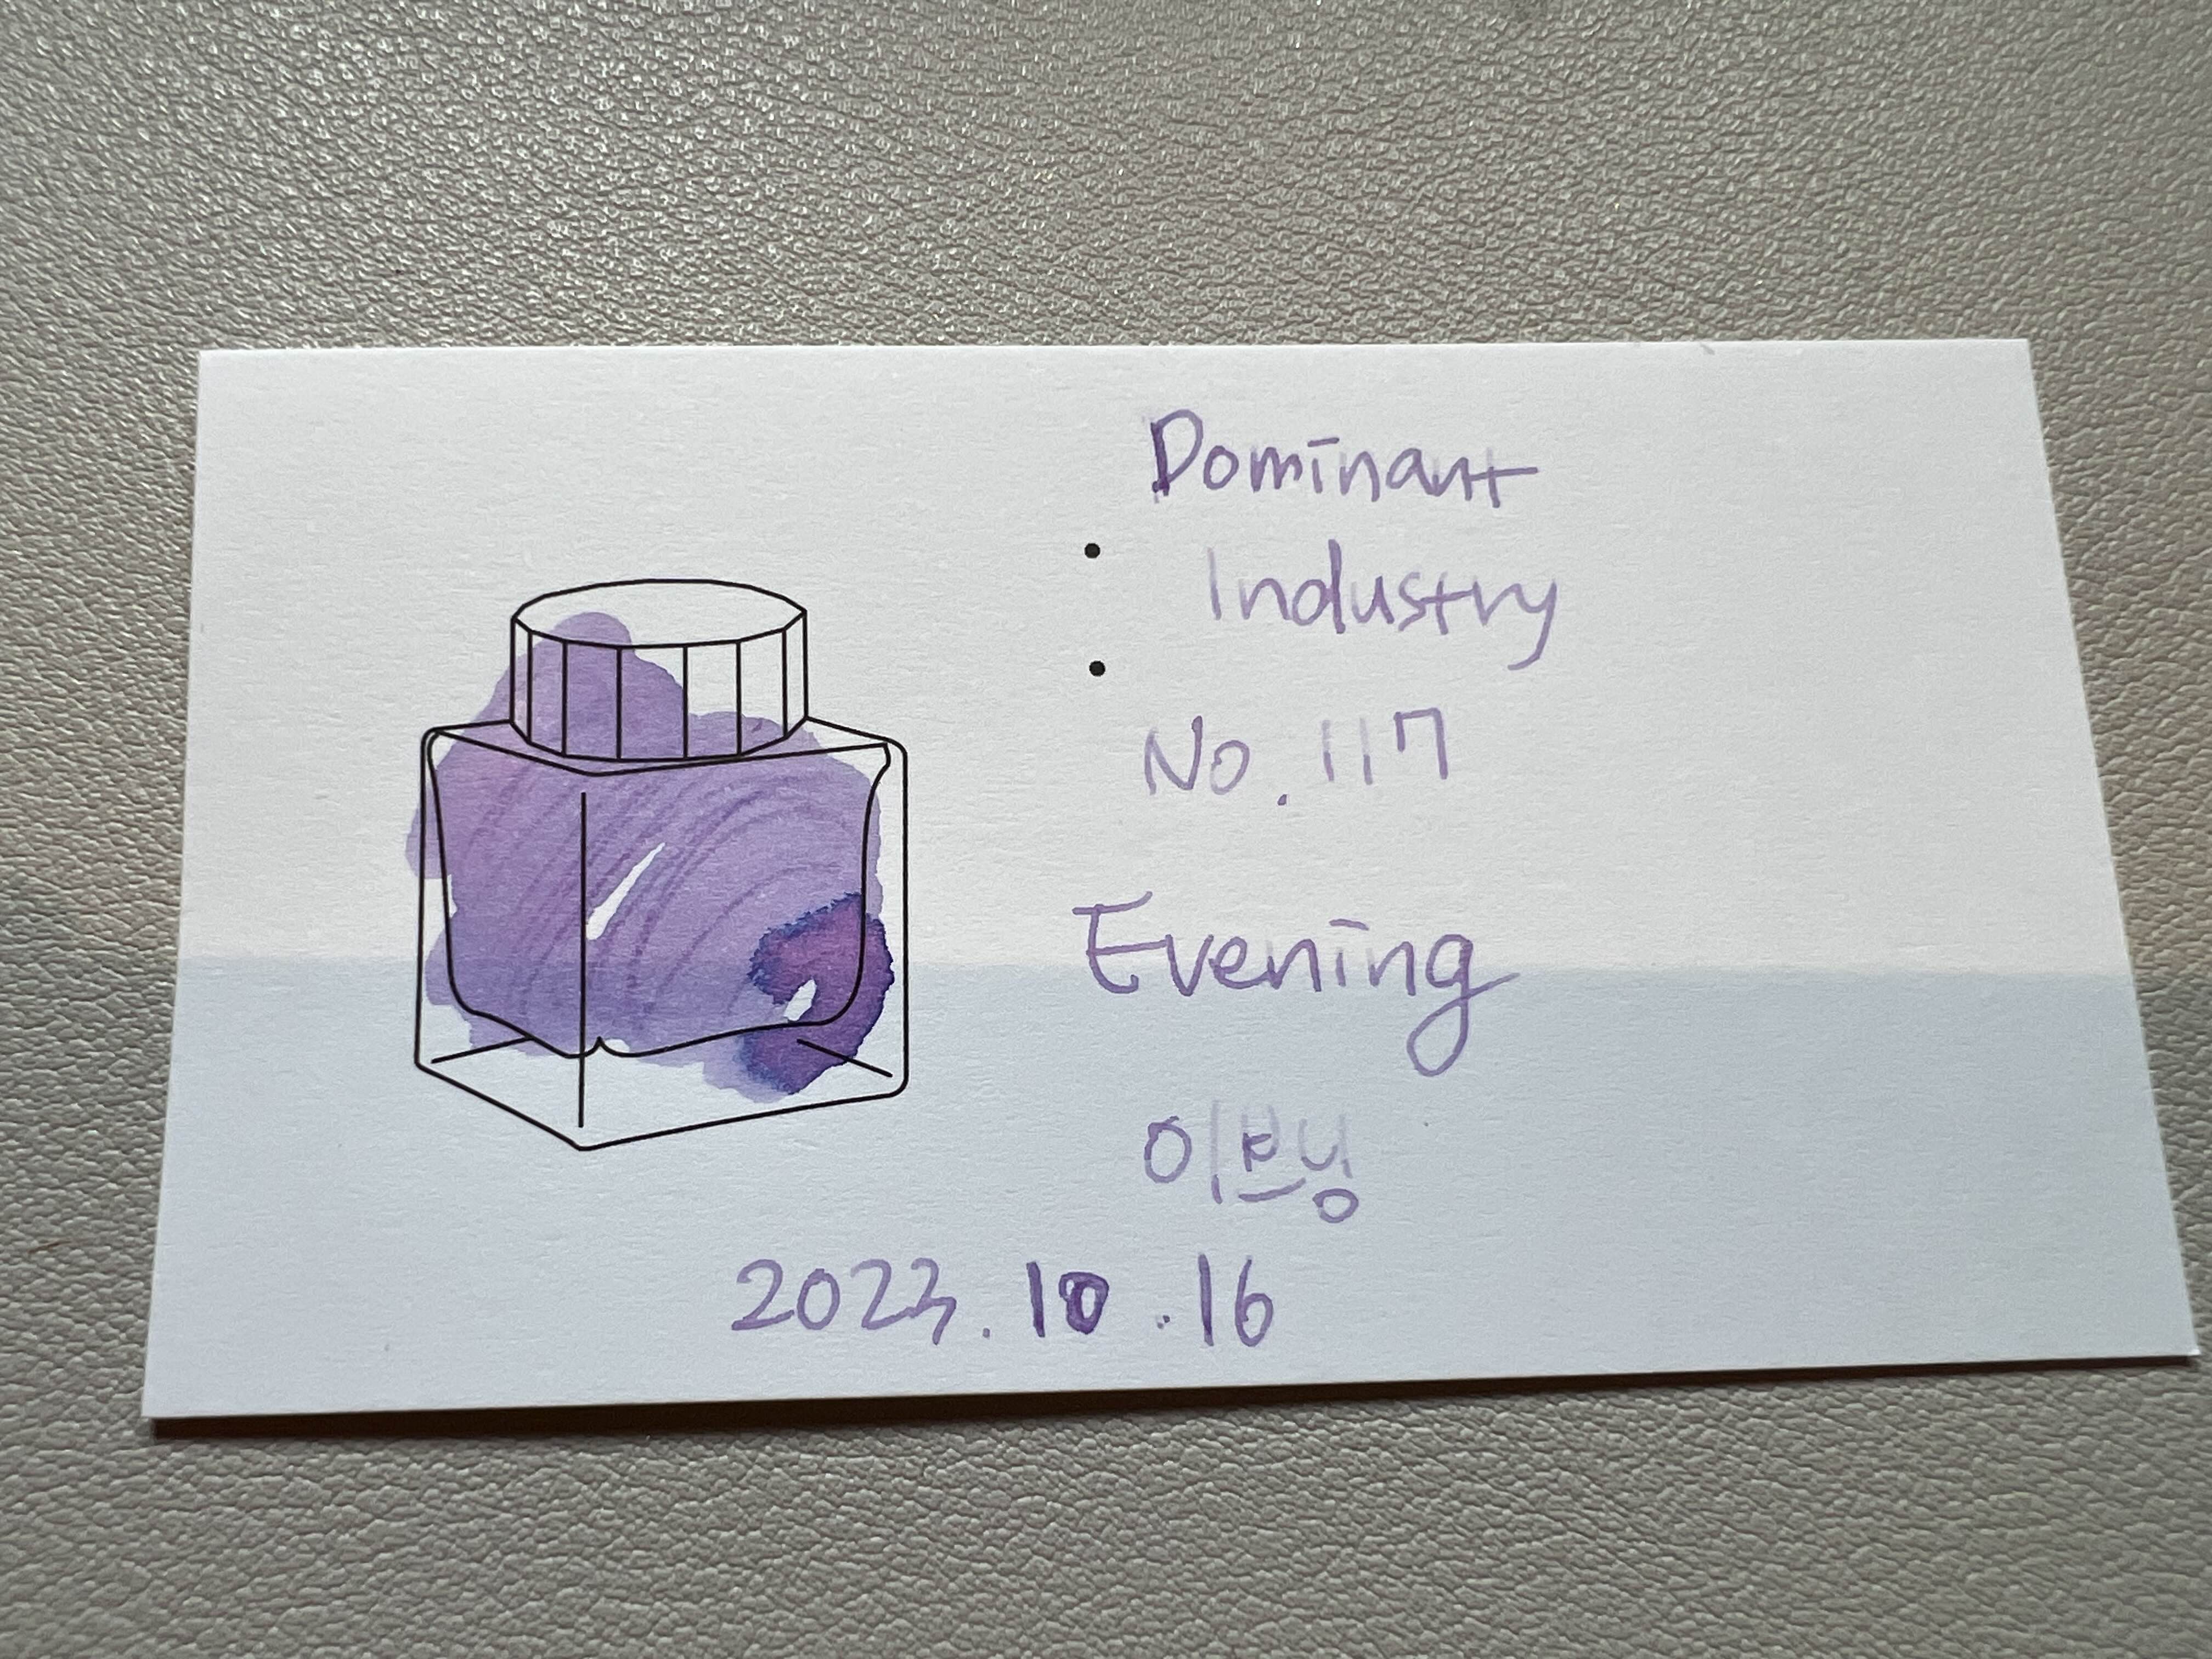 Dominant
Industry
No. 117
Evening
이브닝
2023. 10. 16